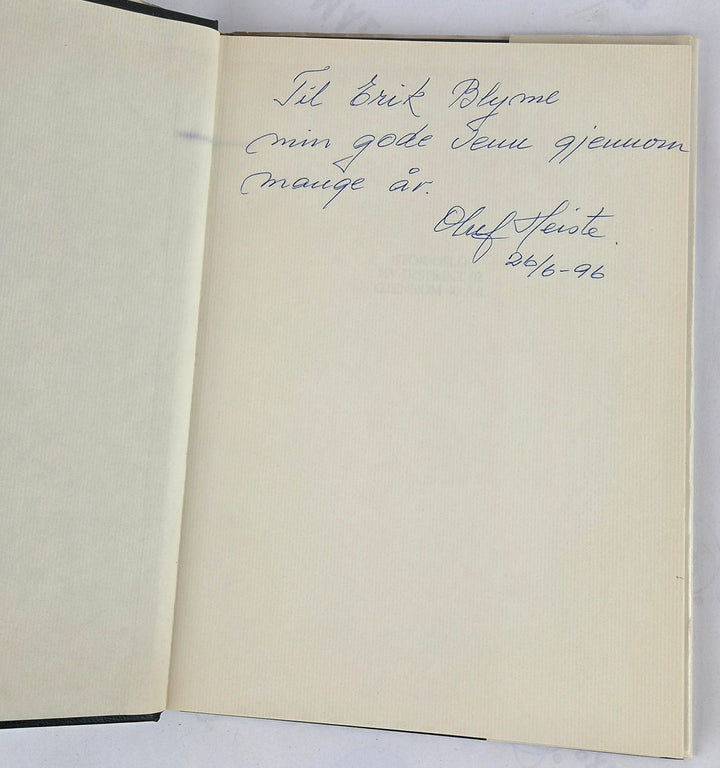 Til Erik Blyme
min gode venn gjennom
mange år.
Oluf Heiste.
26/6-96